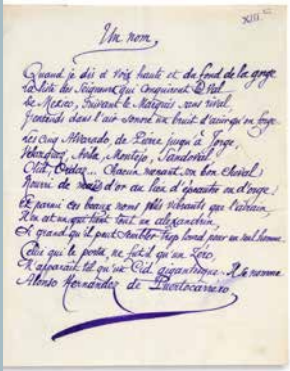 XIII
Un nom
Quand je dis à voix haute et du fond de la gorge
La liste des Seigneurs qui conquirent le Val
De Mexico, suivant le Marquis sans rival,
J'entends dans l'air sonore un bruit d'acier qu'on forge
Les cinq Alvarado, de Pierre jusqu'à Jorge,
Velazquez, Avila, Montejo, Sandoval
Olid, Ordaz... Chacun menant un bon cheval
Nourri de maïs d'or au lieu d'épeautre ou d'orge;
Et parmi ces beaux noms plus vibrants que l'airain,
Il en est un qui tient tout un alexandrin,
Si grand qu'il peut sembler trop lourd pour un seul homme.
Celui qui le porta, ne fût-il qu'un Zéro,
M'apparaît tel qu'un Cid gigantesque. Il se nomme
Alonso Hernandez de Puertocarrero